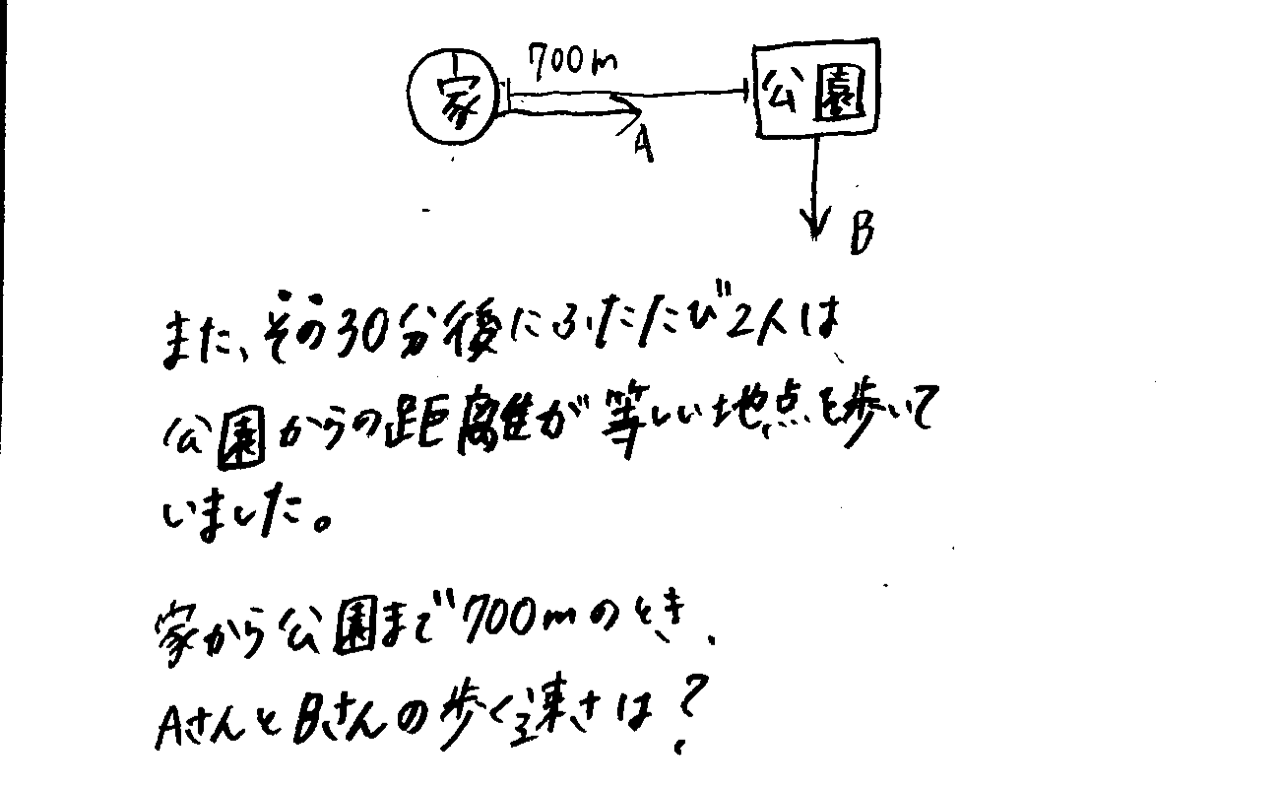 家 700m 公園
A
B
また、その30分後にふたたび2人は、
公園からの距離が等しい地点を歩いて
いました。
家から公園まで700mのとき、
AさんとBさんの歩く速さは?